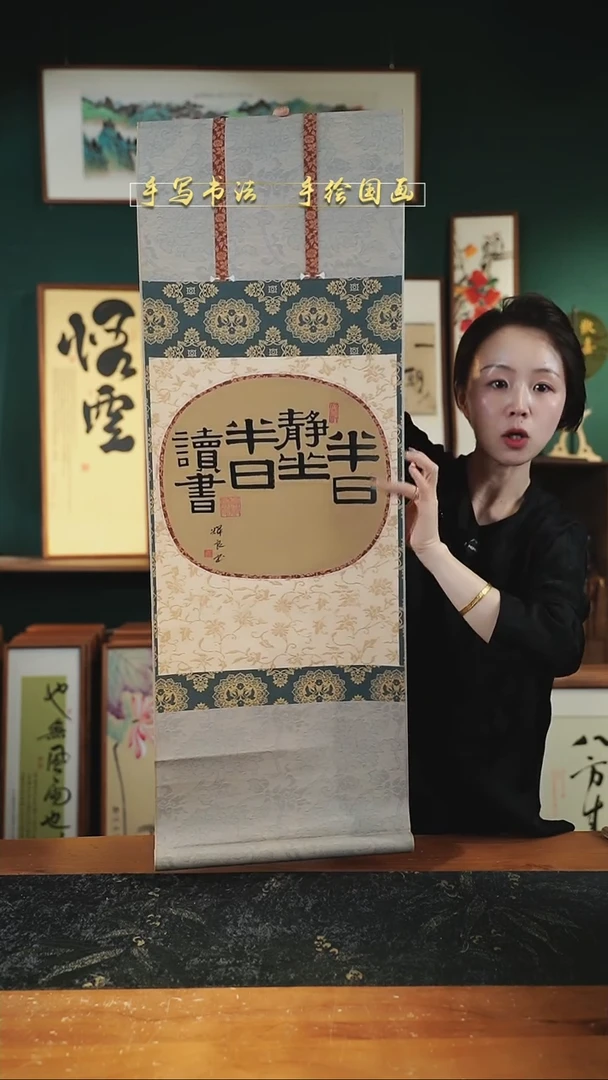 手写书法 手绘国画
半日
静坐
半日
讀書
悟雲
也無風雨也
八方生